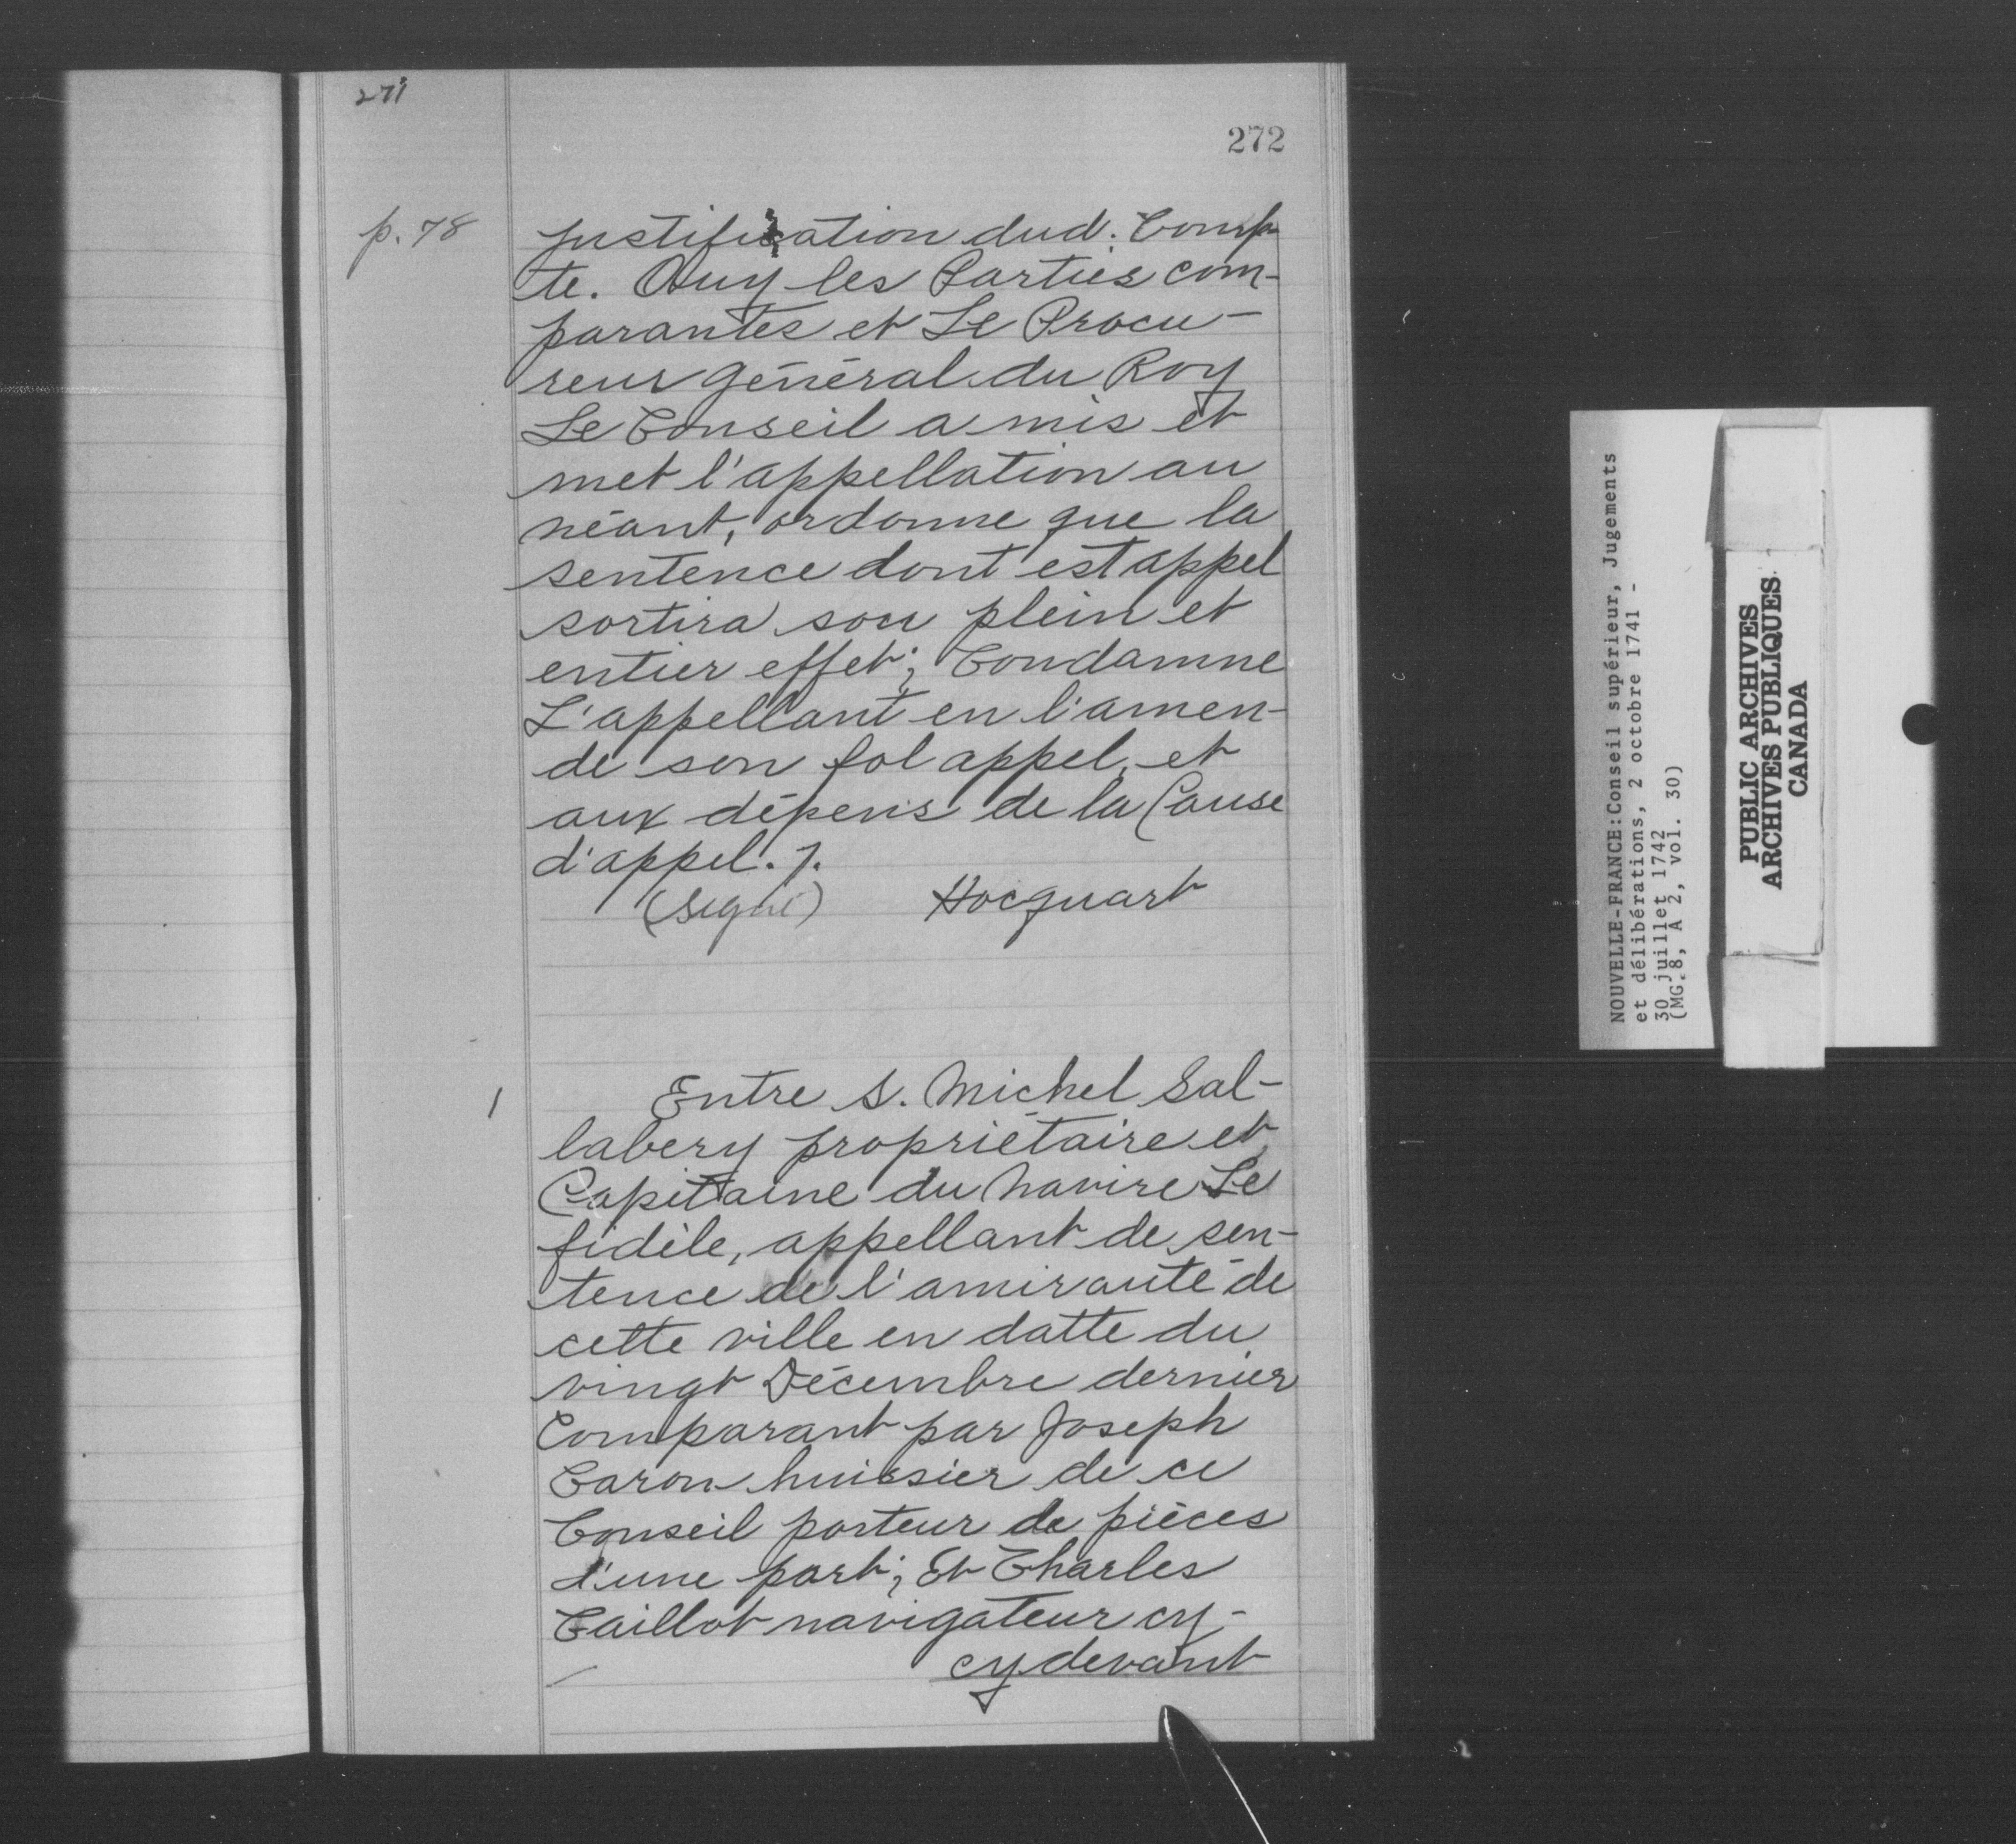 271
272
p. 78
justification dud. Comp
te. Ouy les Parties com-
parantes et Le Procu-
reur général du Roy
Le Conseil a mis et
met l'appellation au
néant, ordonne que la
sentence dont est appel
sortira son plein et
entier effet; Condamne
L'appellant en l'amen-
de son fol appel, et
aux dépens de la Cause
d'appel. ⁊.
(Signé) Hocquart
1
Entre S. Michel Sal-
labery propriétaire et
Capitaine du Navire Le
fidèle, appellant de sen-
tence de l'amirauté de
cette ville en datte du
vingt Décembre dernier
Comparant par Joseph
Caron huissier de ce
Conseil porteur de pièces
d'une part; Et Charles
Caillot navigateur cy-
cy devant
NOUVELLE-FRANCE:Conseil supérieur, Jugements
et délibérations, 2 octobre 1741 -
30 juillet 1742
(MG.8, A 2, vol. 30)
PUBLIC ARCHIVES
ARCHIVES PUBLIQUES
CANADA